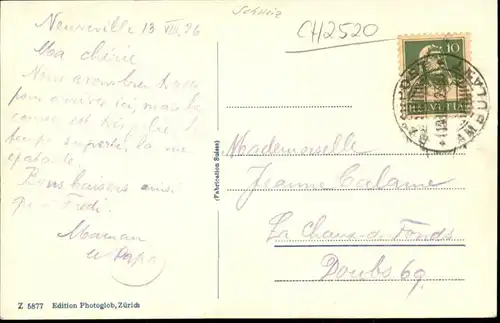 Neuveville 13 VIII. 26
Schweiz
CH2520
Ma chérie
Nous avons bien
pour arriver ici, mais la
course est très
temps superbe, la vue
épatante.
Bons baisers ainsi
Fredi.
Maman
et Papa
10
HELVETIA
POSTE
AMBULANT
(Fabrication Suisse)
Mademoiselle
Jeanne Calame
La Chaux-de-Fonds
Doubs 69.
Z 5877 Edition Photoglob, Zürich